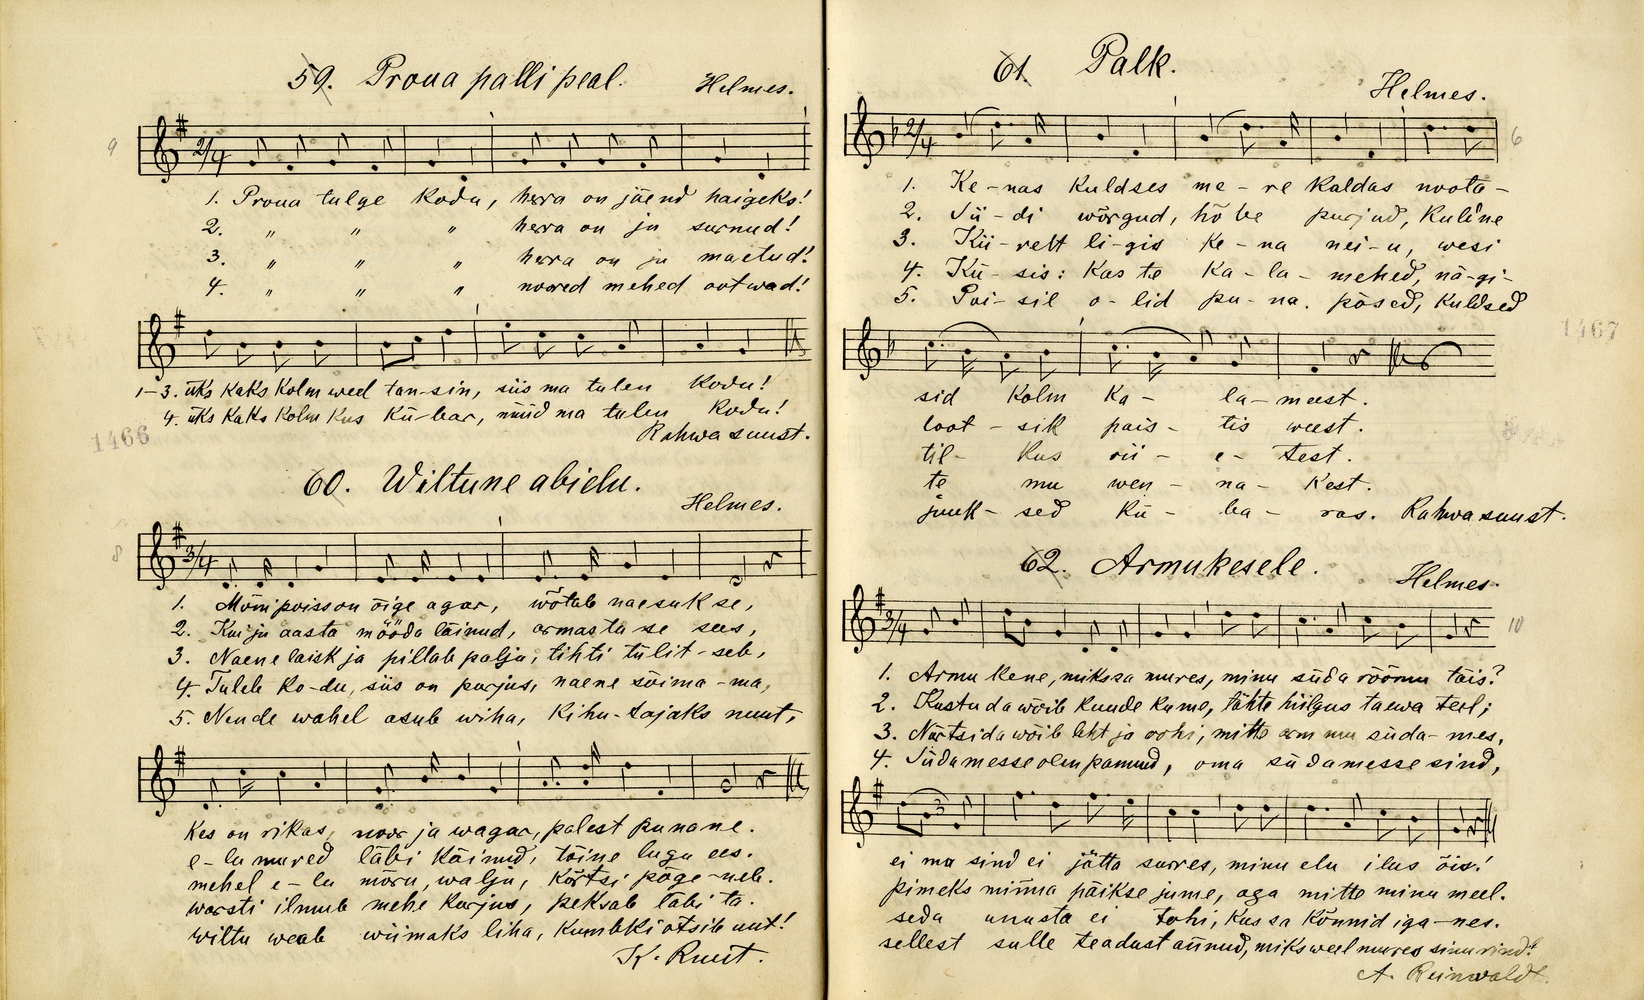 59. Proua palli peal.
Helmes.
9
2/4
1. Proua tulge kodu, herra on jäend haigeks!
2. " " " herra on ju surnud!
3. " " " herra on ju maetud!
4. " " " noored mehed ootwad!
1-3. üks kaks kolm weel tan-sin, siis ma tulen kodu!
4. üks kaks kolm kus kü-bar, nüüd ma tulen kodu!
Rahwa suust.
1466
60. Wiltune abielu.
Helmes.
8
3/4
1. Mõni poiss on õige agar, wõtab naesukse,
2. Kui ju aasta mööda läinud, armastuse sees,
3. Naene laisk ja pillab palju, tihti tülit-seb,
4. Tuleb ko-du, siis on purjus, naene sõima-ma,
5. Nende wahel asub wiha, kihu-tajaks muut,
kes on rikas, noor ja wagar, palest punane.
e-lu mured läbi käinud, tõine lugu ees.
mehel e-lu mõru, walju, kõrtsi põge-neb.
warsti ilmub mehe kurjus, peksab läbi ta.
wiltu weab wiimaks liha, kumbki otsib uut!
K. Ruut.
61. Palk.
Helmes.
2/4
6
1. Ke-nas kuldses me-re kaldas noota-
2. Sii-di wõrgud, hõbe purjud, kuline
3. Kü-relt li-gis ke-na nei-u, wesi
4. Kü-sis: Kas te ka-la-mehed, nä-gi-
5. Poi-sil o-lid pu-na. põsed, kuldsed
1467
sid kolm ka-la-meest.
loot-sik pais-tis weest.
til-kus rii-e-test.
te mu wen-na-kest.
juuk-sed kü-ba-ras. Rahwa suust.
62. Armukesele.
Helmes.
3/4
10
1. Armukene, miks sa mures, minu süda rõõmu täis?
2. Kustuda wõib kuude kume, tähte hiilgus taewa teel;
3. Närtsida wõib leht ja oohi, mitte arm mu süda-mes,
4. Südamesse olen pannud, oma südamesse sind,
3
ei ma sind ei jätta surres, minu elu ilus õis!
pimeks minna päikse jume, aga mitte minu meel.
seda unusta ei tohi, kus sa kõnnid iga-nes.
sellest sulle teadust annud, miks weel mures sinu rind!
A. Reinwaldt.